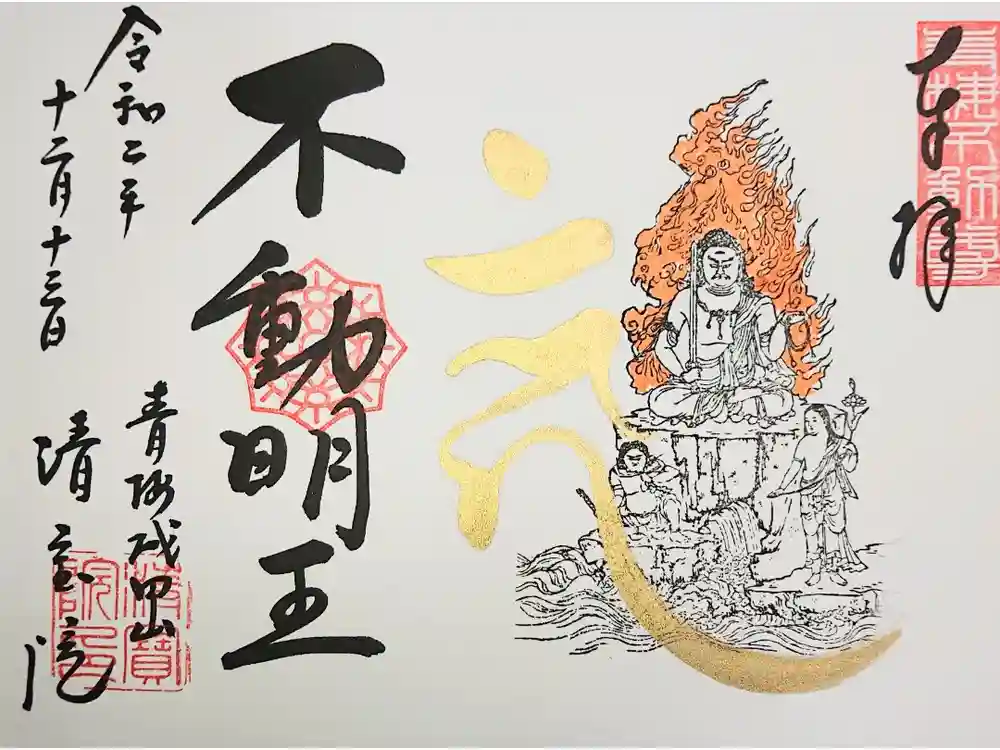 奉拝
青梅不動尊
不動明王
令和二年
十二月十三日
青梅成田山
清宝院
清寶院印